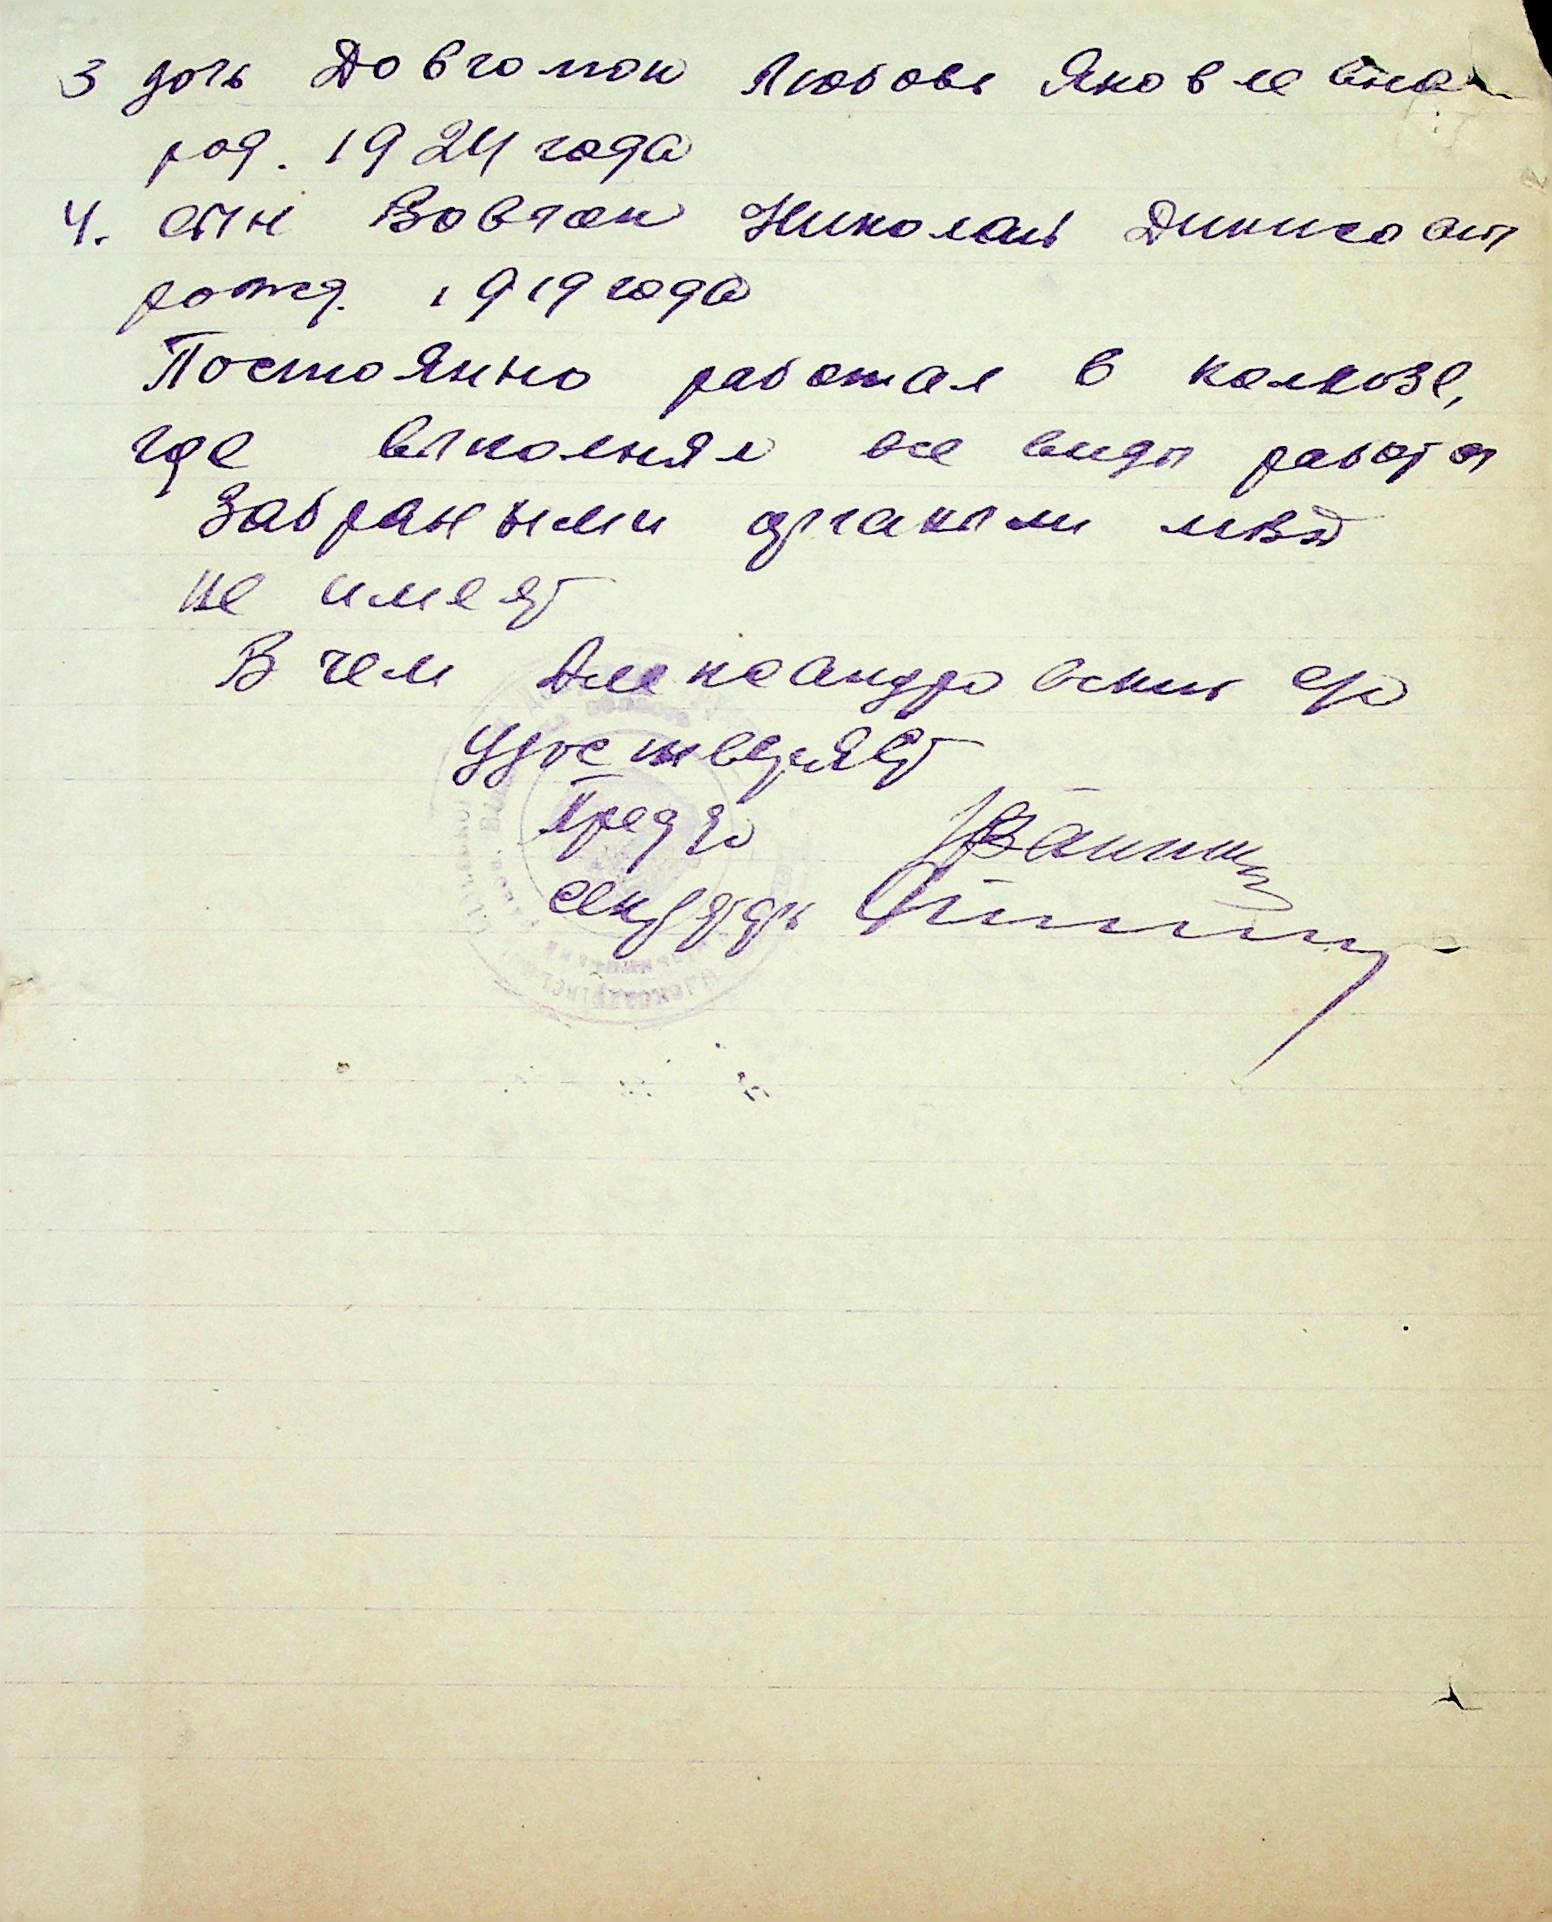 3 дочь Довгопок Любовь Яковлевна
род. 1924 года
4. сын Вовчок Николай
рожд. 1919 года
Постоянно работал в колхозе,
где выполнял все виды работы
Забраными органыми МВД
не имеет
В чем Александровский с/с
удостверяет
Пред с/с
секретарь